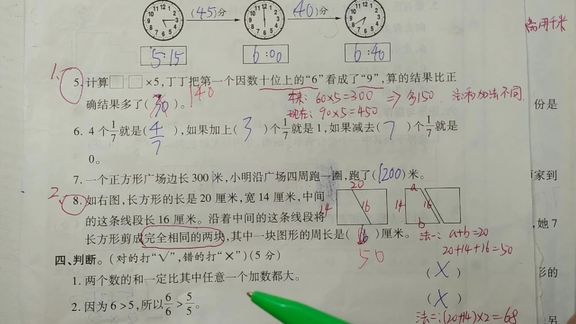 (45)分 (40)分
5:15 6:00 6:40
1. 5. 计算□□×5,丁丁把第一个因数十位上的“6”看成了“9”,算的结果比正
确结果多了(30)。 140 本来: 60×5=300 ⇒ 多150
现在: 90×5=450
份是
6. 4个1/7就是(4/7),如果加上(3)个1/7就是1,如果减去(7)个1/7就是
0。
7. 一个正方形广场边长300米,小明沿广场四周跑一圈,跑了(1200)米。
家到
2. 8. 如右图,长方形的长是20厘米,宽14厘米,中间
的这条线段长16厘米。沿着中间的这条线段将
长方形剪成完全相同的两块,其中一块图形的周长是(16)厘米。 50
20 14 16 a 14 16 b
,她7
法一: a+b=20
20+14+16=50
四、判断。(对的打“√”,错的打“×”)(5分)
1. 两个数的和一定比其中任意一个加数都大。 (×)
形的
2. 因为6>5,所以6/6>5/5。 (×)
法二: (20+14)×2=68